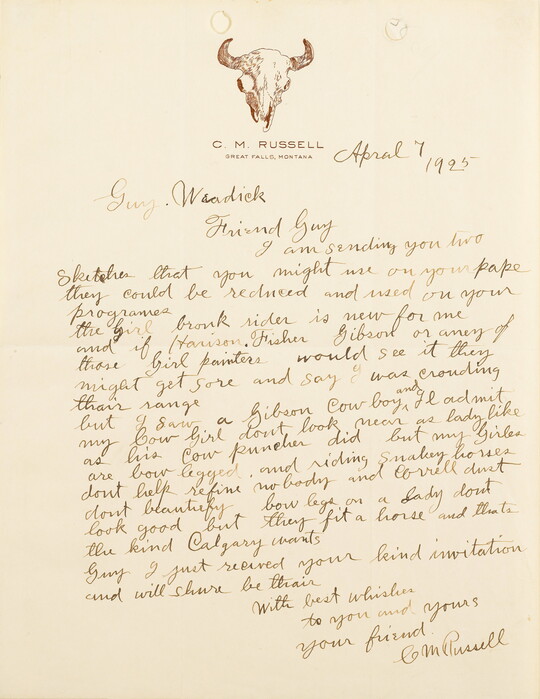 C. M. RUSSELL
GREAT FALLS, MONTANA
Apral 7 1925
Guy. Weadick
Friend Guy
I am sending you two
Sketches that you might use on your pape
they could be reduced and used on your
programes
the Girl bronk rider is new for me
and if Harison Fisher Gibson or aney of
those Girl painters would see it they
might get sore and say I was crouding
thair range
but I saw a Gibson Cow boy and Il admit
my Cow Girl dont look near as lady like
as his Cow puncher did but my Girles
are bow legged. and riding snakey horses
dont help refine nobody and Correll dust
dont beautify bow legs on a lady dont
look good but they fit a horse and thats
the kind Calgary wants
Guy I just received your kind invitation
and will shure be thair
With best whishes
to you and yours
your friend.
C M Russell